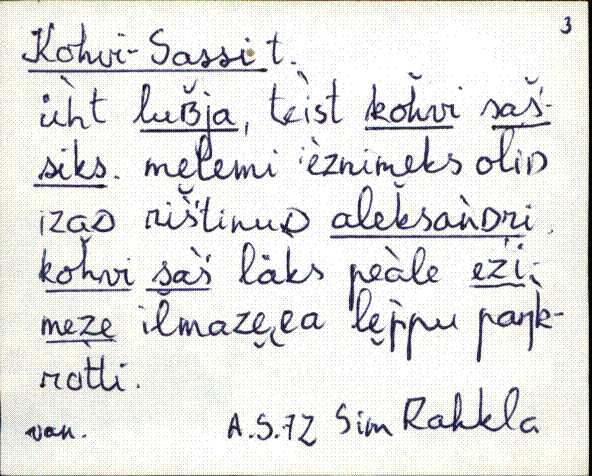 3
Kohvi-Sassi t.
üht luBja, tèist kohvi saš̀-
siks. melemi èznimeks oliD
izaD rištinuD aleksànDri.
kohvi saš̀ läks peàle ezi-
meze ilmazẹea lẹ̀ppu paŋk-
rotti.
van. A.S.72 Sim Rahkla